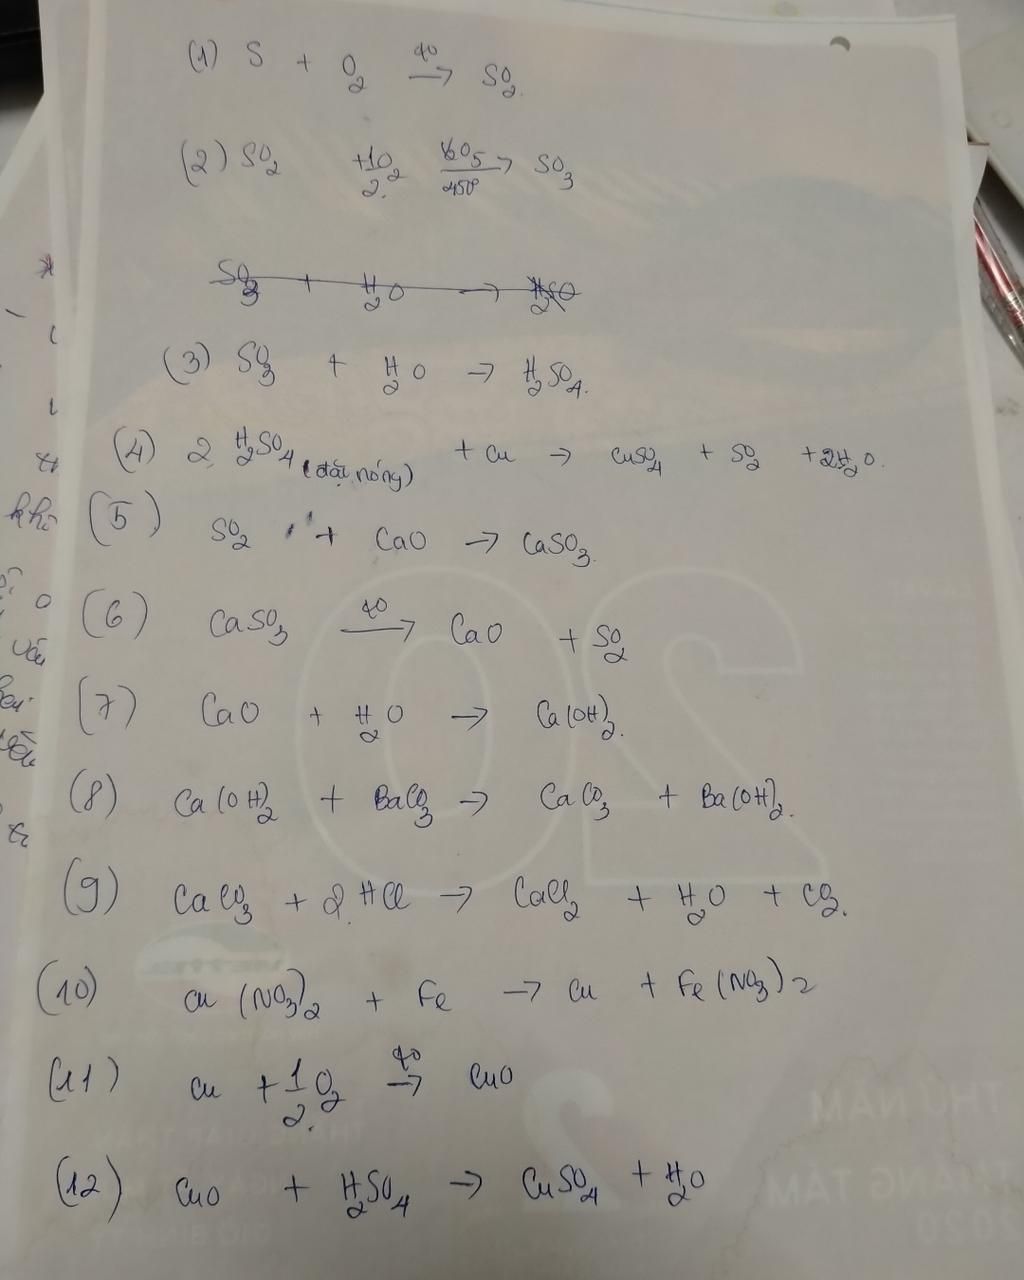 (1) S + O2 t° → SO2.
(2) SO2 + 1/2 O2 V2O5 → 450° SO3
SO3 + H2O →
(3) SO3 + H2O → H2SO4.
(4) 2 H2SO4 (đặc, nóng) + Cu → CuSO4 + SO2 + 2H2O.
(5) SO2 + CaO → CaSO3.
(6) CaSO3 t° → CaO + SO2
(7) CaO + H2O → Ca(OH)2.
(8) Ca(OH)2 + BaCO3 → CaCO3 + Ba(OH)2.
(9) CaCO3 + 2 HCl → CaCl2 + H2O + CO2.
(10) Cu(NO3)2 + Fe → Cu + Fe(NO3)2
(11) Cu + 1/2 O2 t° → CuO
(12) CuO + H2SO4 → CuSO4 + H2O